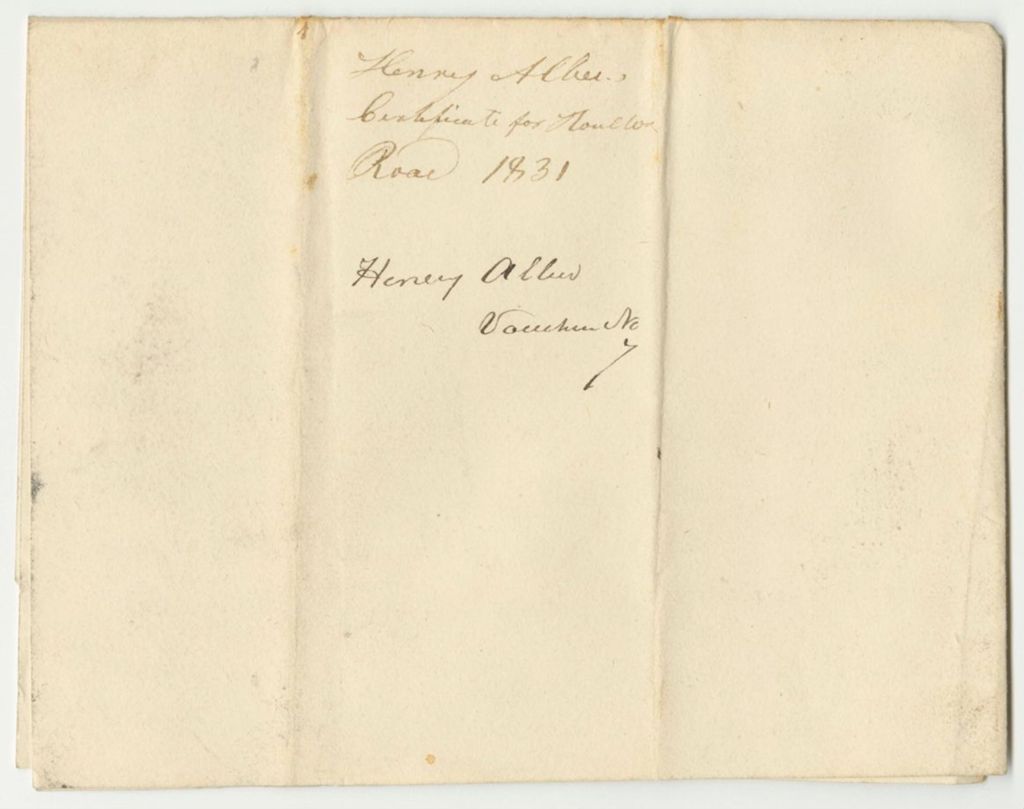 Henry Allen.
Certificate for Houlton
Road 1831
Henery Allen
Voucher No
7